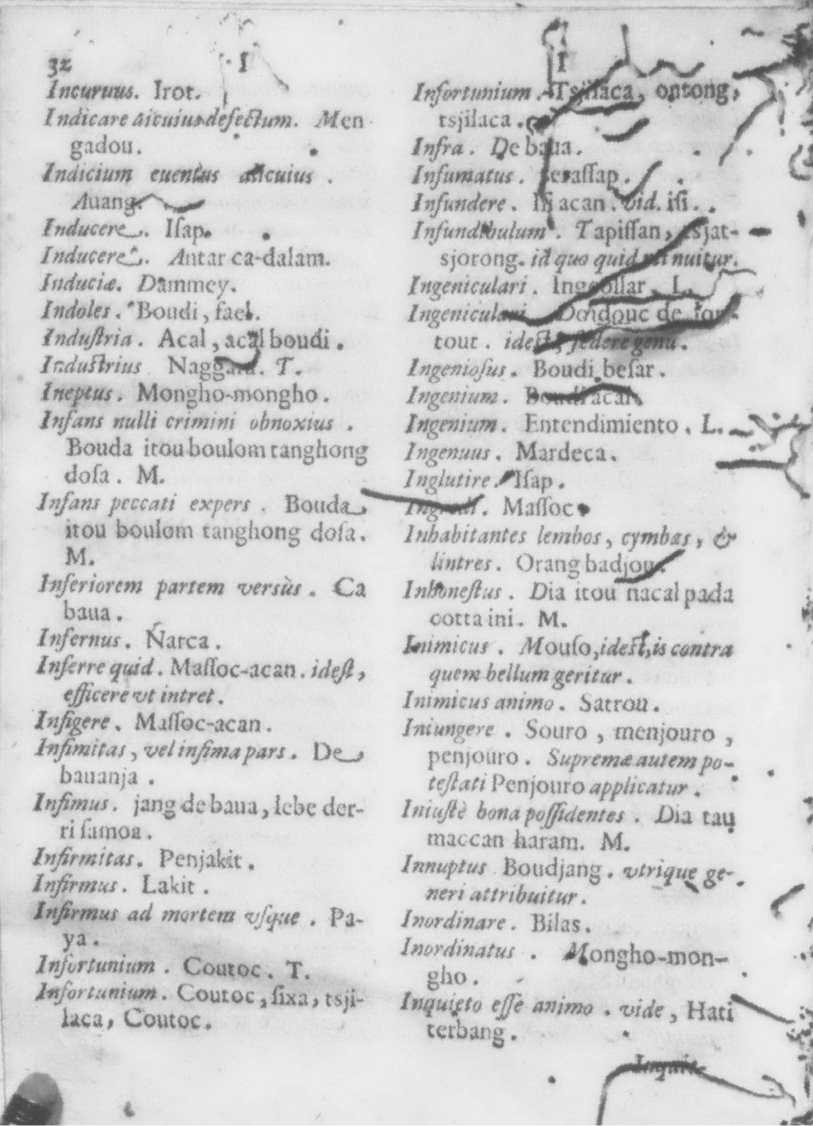 32 I I
Incuruus. Irot.
Indicare alicuius defectum. Men
gadou.
Indicium euentus alicuius.
Auang.
Inducere. Iſap.
Inducere. Antar ca-dalam.
Induciæ. Dammey.
Indoles. Boudi, fael.
Induſtria. Acal, acal boudi.
Induſtrius Naggara. T.
Ineptus. Mongho-mongho.
Infans nulli crimini obnoxius.
Bouda itou boulom tanghong
doſa. M.
Infans peccati expers. Bouda
itou boulom tanghong doſa.
M.
Inferiorem partem versùs. Ca
baua.
Infernus. Narca.
Inferre quid. Maſſoc-acan. ideſt,
efficere vt intret.
Infigere. Maſſoc-acan.
Infimitas, vel infima pars. De
bauanja.
Infimus. jang de baua, lebe der-
ri ſamoa.
Infirmitas. Penjakit.
Infirmus. Lakit.
Infirmus ad mortem vſque. Pa-
ya.
Infortunium. Coutoc. T.
Infortunium. Coutoc, ſixa, tsji-
laca, Coutoc.
Infortunium. Tsjilaca, ontong,
tsjilaca.
Infra. De baua.
Infumatus.
Infundere. Iſi acan. vid. iſi.
Infundibulum. Tapiſſan, tsjat-
sjorong. id quo quid minuitur.
Ingeniculari. L.
Ingeniculari. Doudouc de
tout. ideſt, ſedere genu.
Ingenioſus. Boudi beſar.
Ingenium. Boudi acal.
Ingenium. Entendimiento. L.
Ingenuus. Mardeca.
Inglutire. Iſap.
Ingredi. Maſſoc
Inhabitantes lembos, cymbas, &
lintres. Orang badjou.
Inhoneſtus. Dia itou nacal pada
cotta ini. M.
Inimicus. Mouſo, ideſt, is contra
quem bellum geritur.
Inimicus animo. Satrou.
Iniungere. Souro, menjouro,
penjouro. Supremæ autem po-
teſtati Penjouro applicatur.
Iniuſtè bona poſſidentes. Dia tau
maccan haram. M.
Innuptus Boudjang. vtrique ge-
neri attribuitur.
Inordinare. Bilas.
Inordinatus. Mongho-mon-
gho.
Inquieto eſſe animo. vide, Hati
terbang.
Inquit-